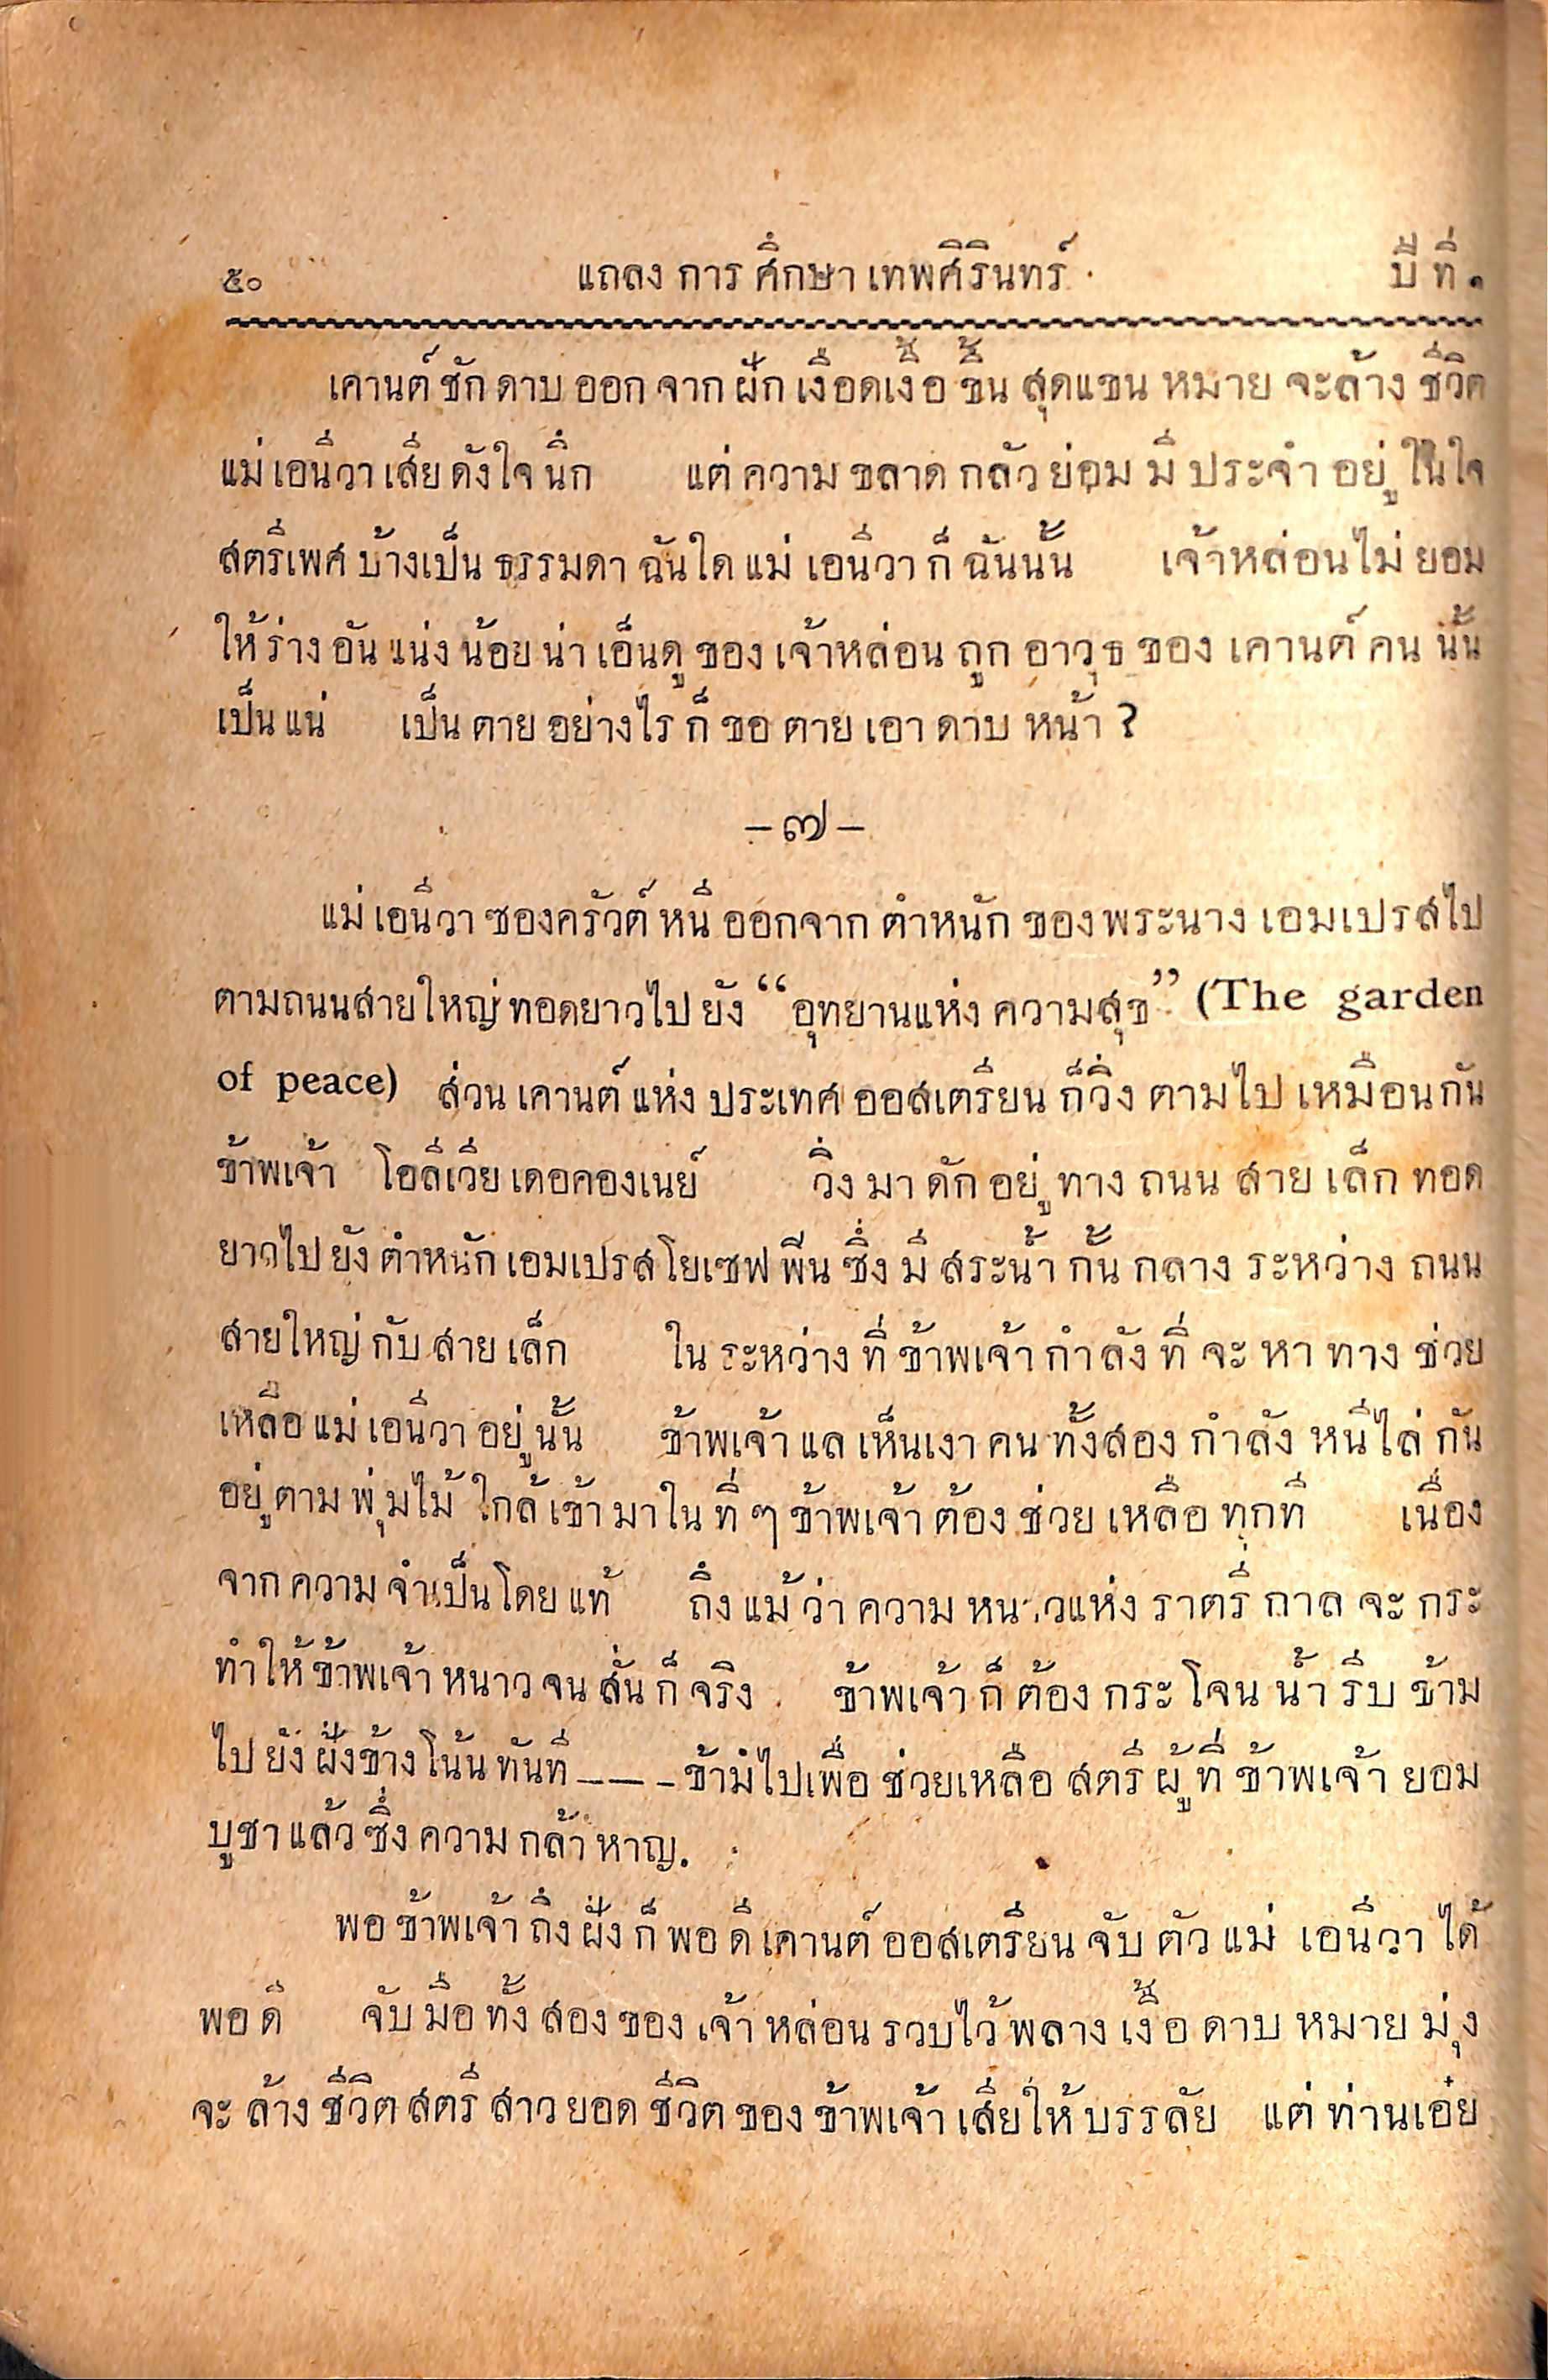 ๕๐ แถลงการศึกษาเทพศิรินทร์ ปีที่ ๑
เคานต์ชักดาบออกจากฝักเงือดเงื้อขึ้นสุดแขนหมายจะล้างชีวิต
แม่เอนีวาเสียดังใจนึก แต่ความขลาดกลัวย่อมมีประจำอยู่ในใจ
สตรีเพศบ้างเป็นธรรมดาฉันใดแม่เอนีวาก็ฉันนั้น เจ้าหล่อนไม่ยอม
ให้ร่างอันแน่งน้อยน่าเอ็นดูของเจ้าหล่อนถูกอาวุธของเคานต์คนนั้น
เป็นแน่ เป็นตายอย่างไรก็ขอตายเอาดาบหน้า ?
–๗–
แม่เอนีวาซองครัวต์หนีออกจากตำหนักของพระนางเอมเปรสไป
ตามถนนสายใหญ่ทอดยาวไปยัง “อุทยานแห่งความสุข” (The garden
of peace) ส่วนเคานต์แห่งประเทศออสเตรียนก็วิ่งตามไปเหมือนกัน
ข้าพเจ้า โอลิเวียเดอคองเนย์ วิ่งมาดักอยู่ทางถนนสายเล็กทอด
ยาวไปยังตำหนักเอมเปรสโยเซฟพีนซึ่งมีสระน้ำกั้นกลางระหว่างถนน
สายใหญ่กับสายเล็ก ในระหว่างที่ข้าพเจ้ากำลังที่จะหาทางช่วย
เหลือแม่เอนีวาอยู่นั้น ข้าพเจ้าแลเห็นเงาคนทั้งสองกำลังหนีไล่กัน
อยู่ตามพุ่มไม้ใกล้เข้ามาในที่ๆข้าพเจ้าต้องช่วยเหลือทุกที เนื่อง
จากความจำเป็นโดยแท้ ถึงแม้ว่าความหนาวแห่งราตรีกาลจะกระ
ทำให้ข้าพเจ้าหนาวจนสั่นก็จริง ข้าพเจ้าก็ต้องกระโจนน้ำรีบข้าม
ไปยังฝั่งข้างโน้นทันที – – – ข้ามไปเพื่อช่วยเหลือสตรีผู้ที่ข้าพเจ้ายอม
บูชาแล้วซึ่งความกล้าหาญ.
พอข้าพเจ้าถึงฝั่งก็พอดีเคานต์ออสเตรียนจับตัวแม่เอนีวาได้
พอดี จับมือทั้งสองของเจ้าหล่อนรวบไว้พลางเงื้อดาบหมายมุ่ง
จะล้างชีวิตสตรีสาวยอดชีวิตของข้าพเจ้าเสียให้บรรลัย แต่ท่านเอ๋ย